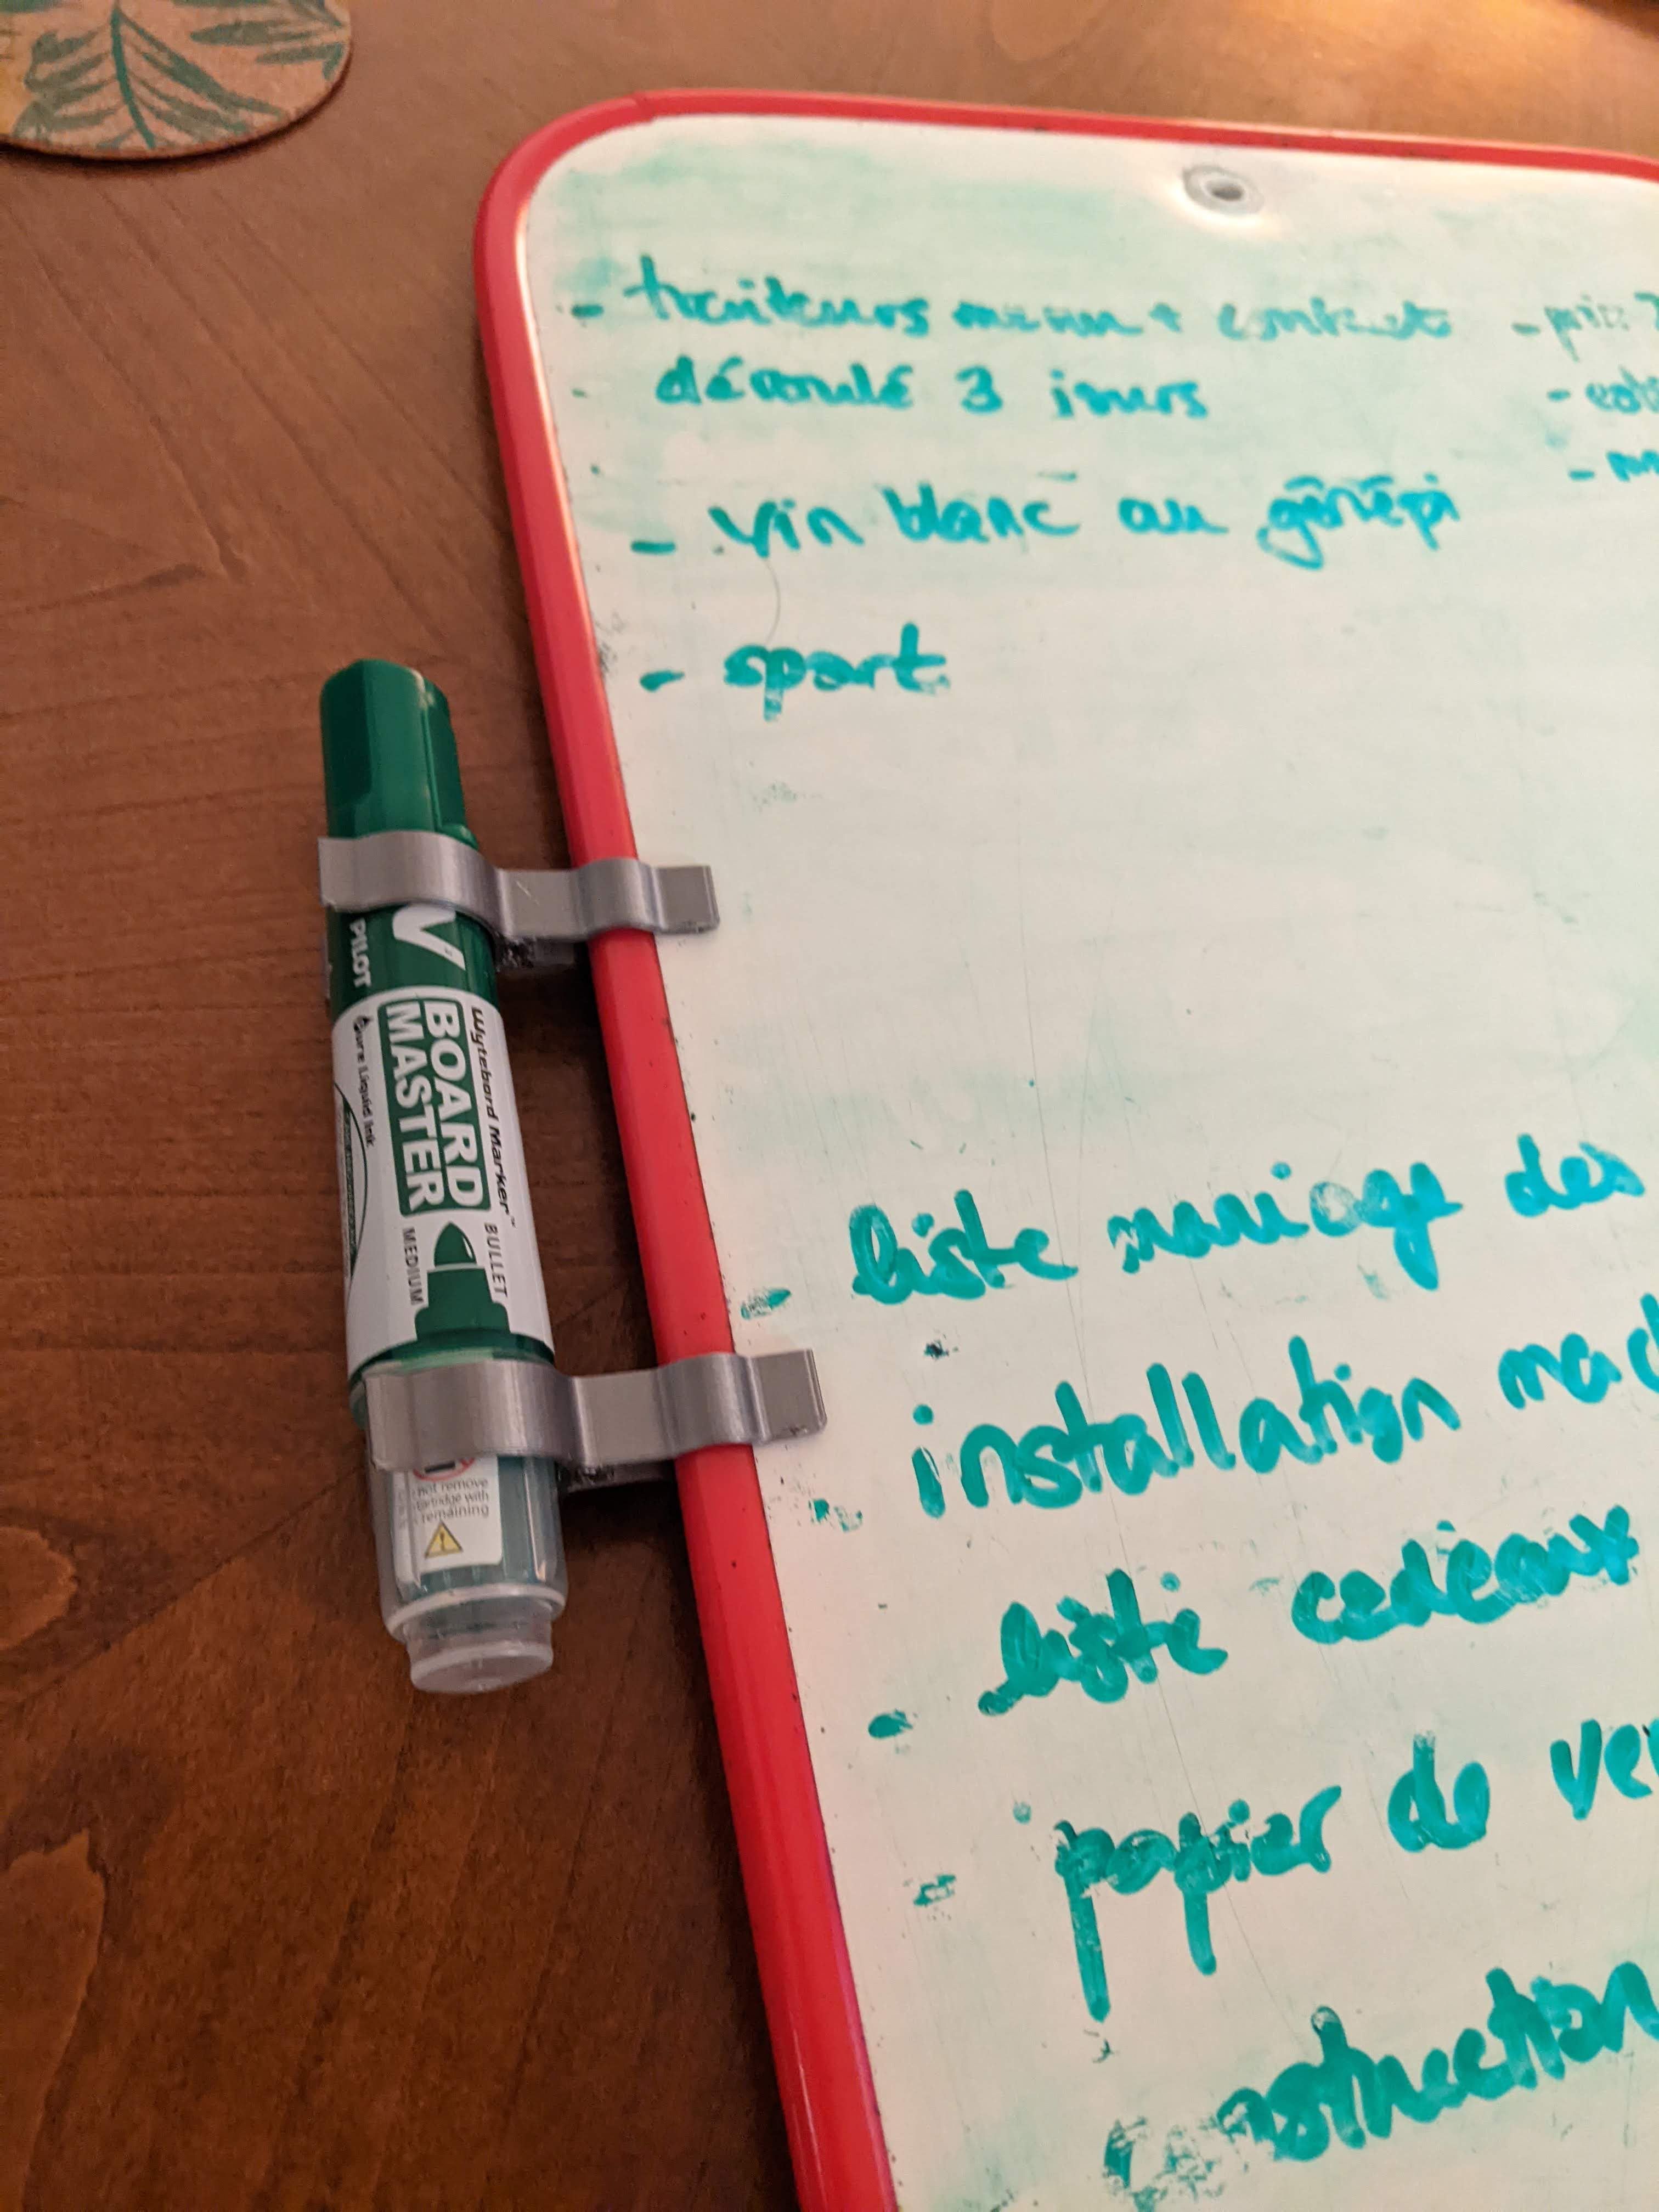 - traiteurs menu + contact
- déroulé 3 jours
- vin blanc au génépi
- sport
- liste mariage des
installation
- liste cadeaux
- papier de
PILOT
Wytebord Marker™
BOARD
MASTER
BULLET
MEDIUM
Pure Liquid Ink
not remove
cartridge with
remaining